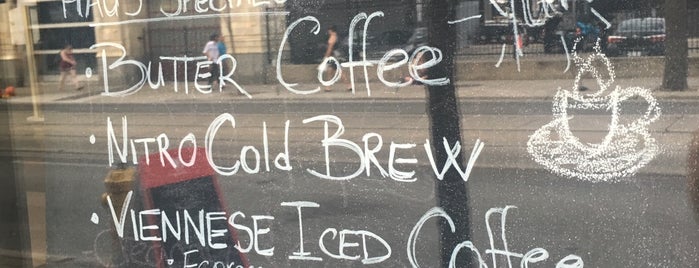 HAUS SPECIALS
• BUTTER Coffee
• NITRO Cold BREW
• VIENNESE ICED Coffee